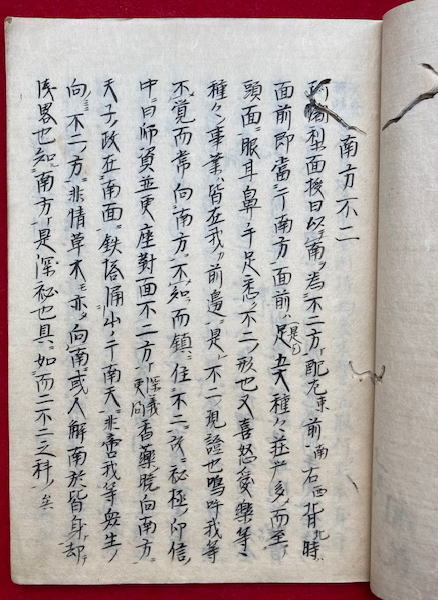 南方不二
阿闍梨面授曰以南為不二方配左東前南右西背北時
面前即當二南方面前足五大種々莊嚴多而至
頭面眼耳鼻手足悉不二形也又喜怒愛樂等
種々事業皆在我前邊是不二現證也嗚呼我等
不覚而常向南方不知而鎮住不二秘極仰信
中曰師資並更座對面不二方深義更問香藥脘向南方
天子政在南面鉄塔涌出二南天非啻我等衆生
向不二方非情草木亦向南或人解南於皆身却
浅畧也知南方是深秘也具如而二不二之科矣